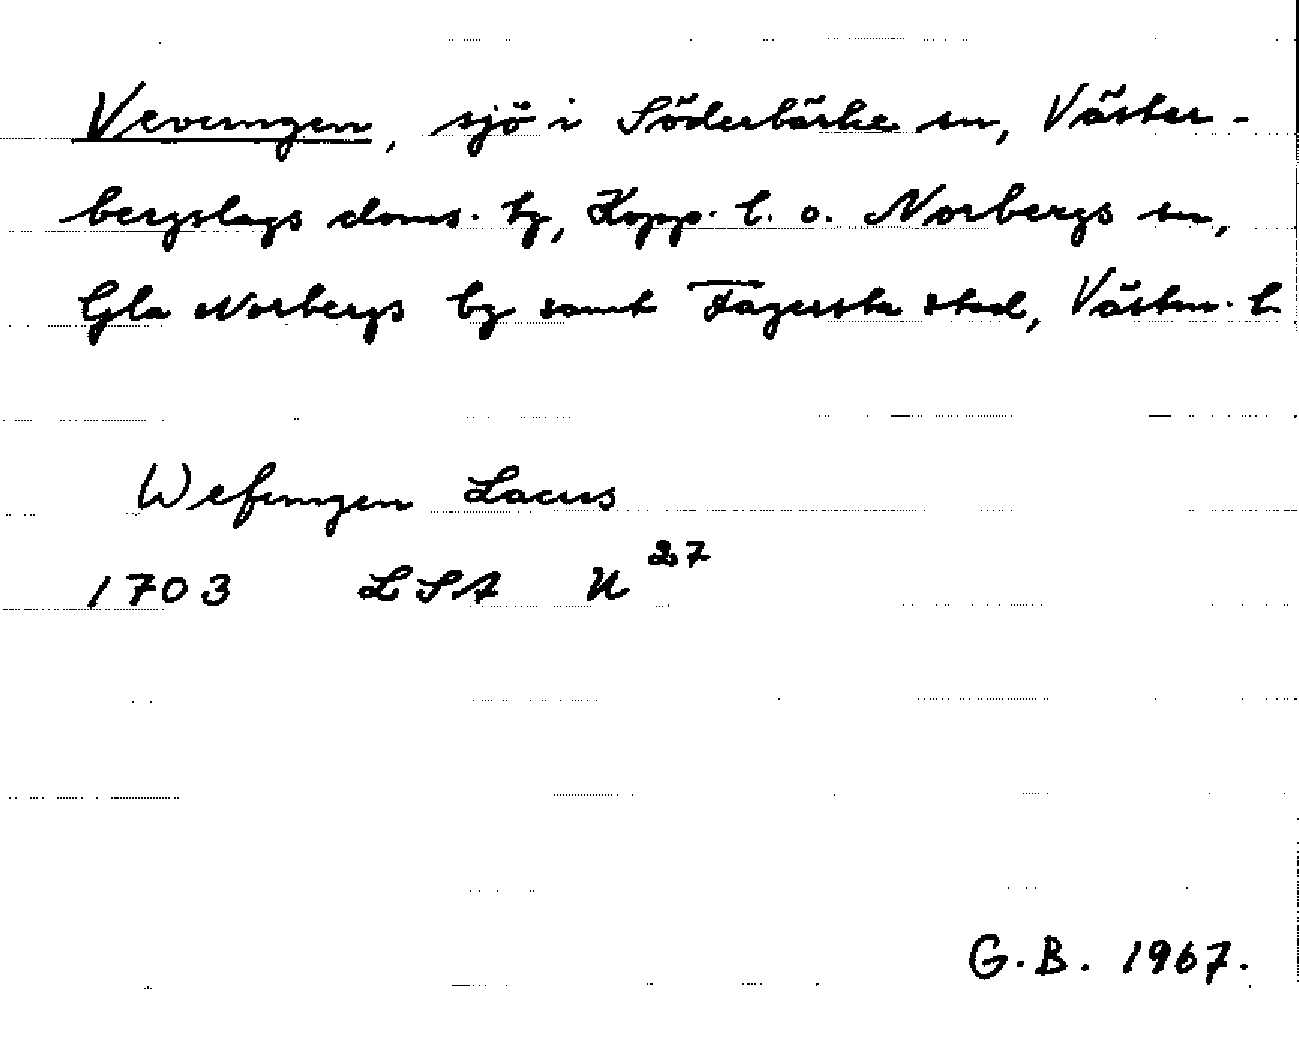 Vevungen, sjö i Söderbärke sn, Väster-
bergslags doms. hg, Kopp. l. o. Norbergs sn,
Gla Norbergs bg samt Fagersta stad, Västm. l
Wefungen Lacus
1703 LSA U 27
G.B. 1967.